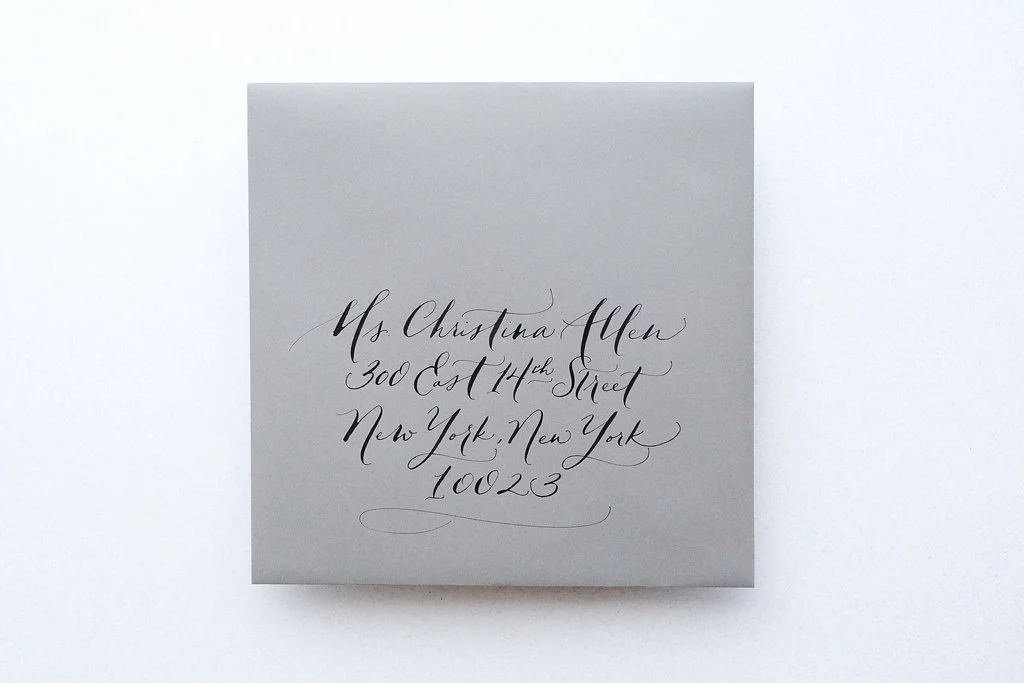 Ms. Christina Allen
300 East 14th Street
New York, New York
10023